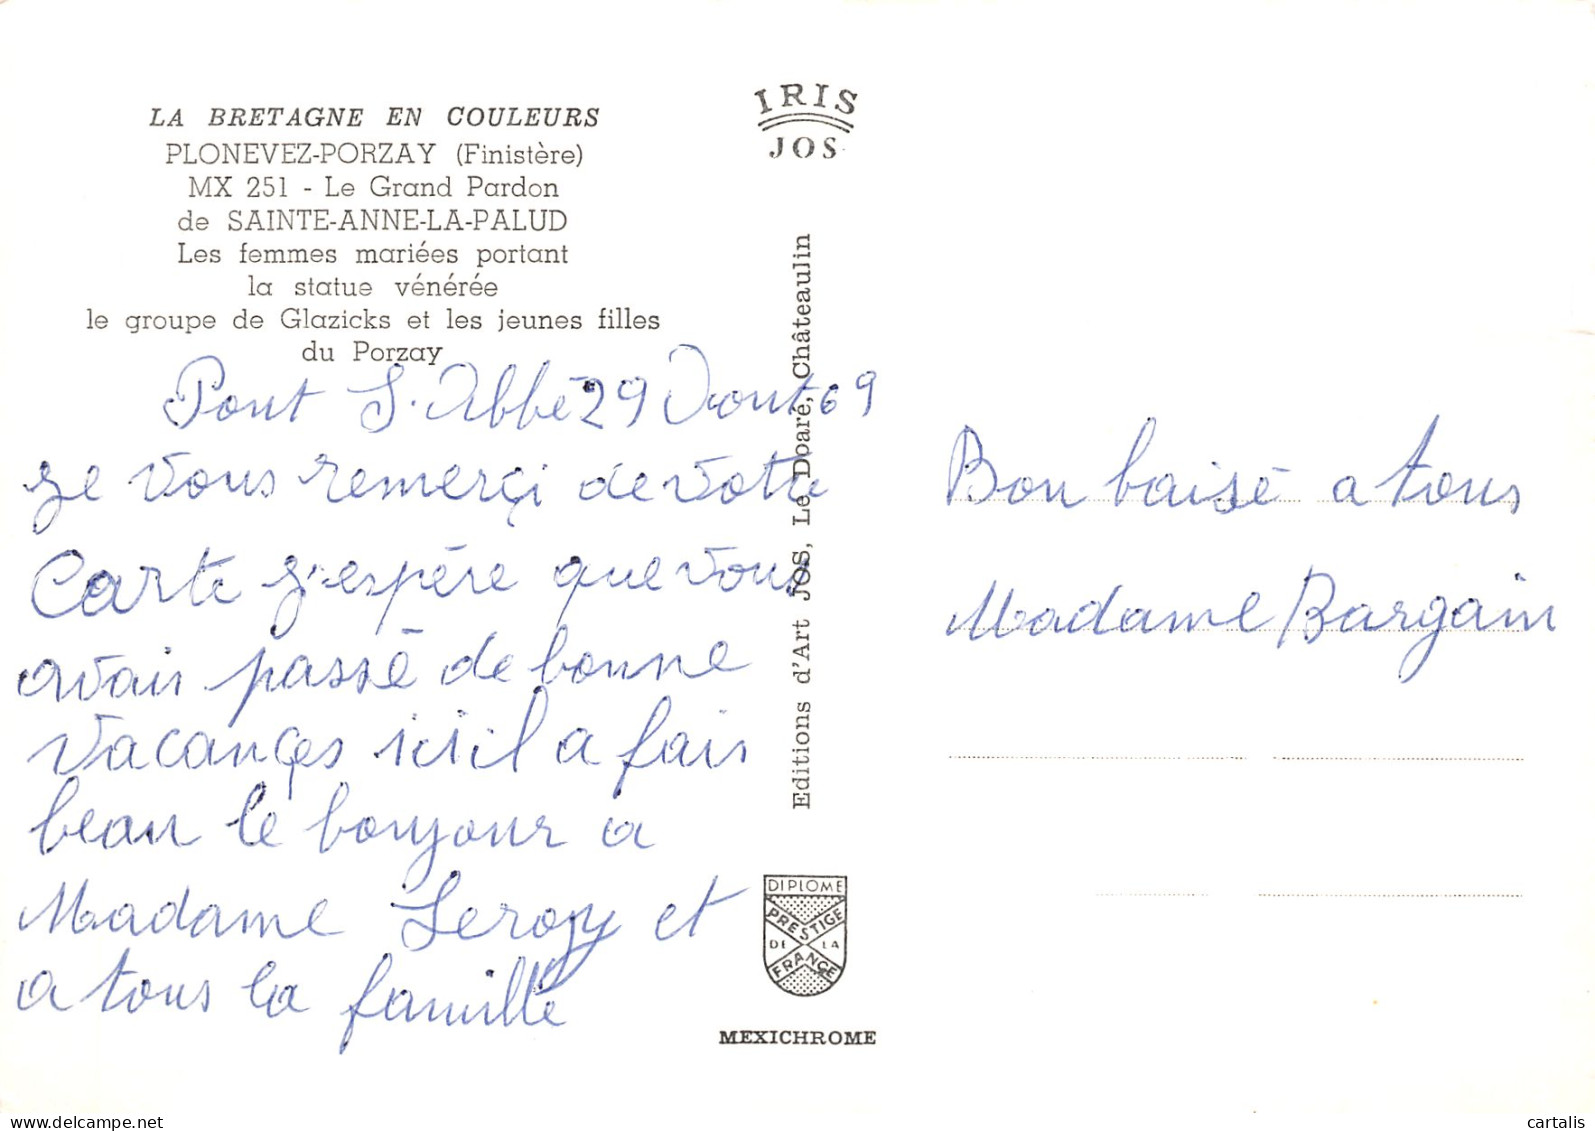 LA BRETAGNE EN COULEURS
PLONEVEZ-PORZAY (Finistère)
MX 251 - Le Grand Pardon
de SAINTE-ANNE-LA-PALUD
Les femmes mariées portant
la statue vénérée
le groupe de Glazicks et les jeunes filles
du Porzay
Pont L'Abbé 29 Aout 69
Je vous remerçi de votre
Carte J'espère que vous
avais passé de bonne
Vacançes ici il a fais
beau le bonjour a
Madame Leroy et
a tous la famille
IRIS
JOS
Editions d'Art JOS, Le Doaré, Châteaulin
DIPLOME
PRESTIGE
DE LA
FRANCE
MEXICHROME
Bon baisé a tous
Madame Bargain
delcampe.net
cartalis